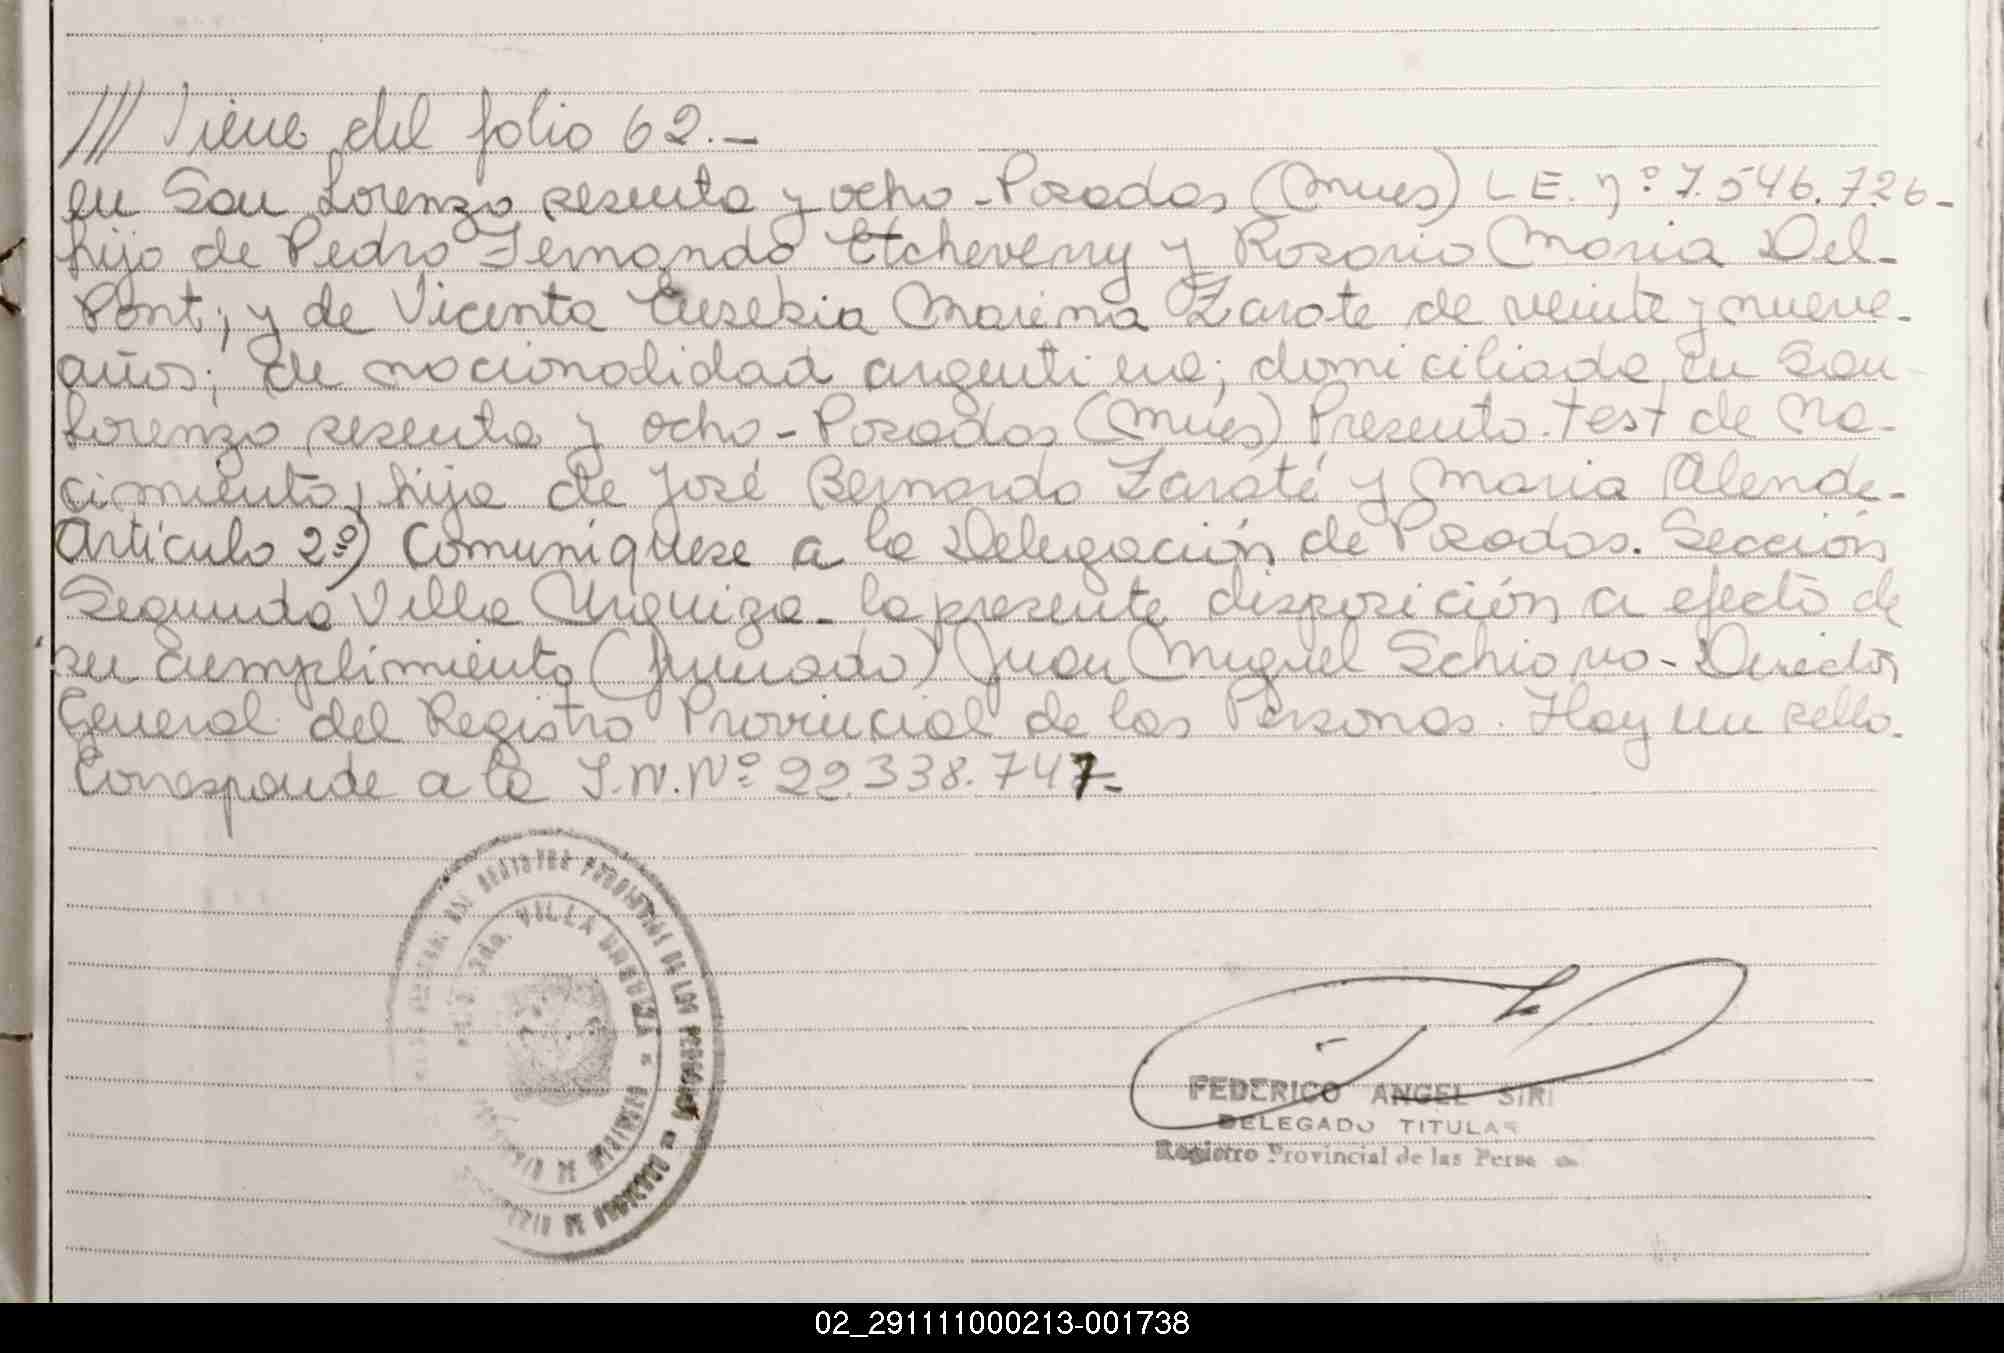 /// Viene del folio 62.-
en San Lorenzo sesenta y ocho - Posadas (Mnes) L E. nº 7.546.726-
hijo de Pedro Fernando Etcheverry y Rosario Maria Del-
Pont; y de Vicenta Eusebia Marina Zarate de veinte y nueve-
años; de nacionalidad argentina; domiciliada en San
Lorenzo sesenta y ocho - Posadas (Mnes) Presento. test de Na-
cimiento, hija de José Bernardo Zaraté y Maria Alende-
Artículo 2º) Comuníquese a la Delegación de Posadas. Sección
Segunda Villa Urquiza - la presente disposición a efecto de
su cumplimiento (firmado) Juan Miguel Schiavo - Director
General del Registro Provincial de las Personas. Hay un sello.
Corresponde a la I.N. Nº 22.338.747-
REGISTRO PROVINCIAL DE LAS PERSONAS
VILLA URQUIZA
FEDERICO ANGEL SIRI
DELEGADO TITULAR
Registro Provincial de las Perso
02_291111000213-001738